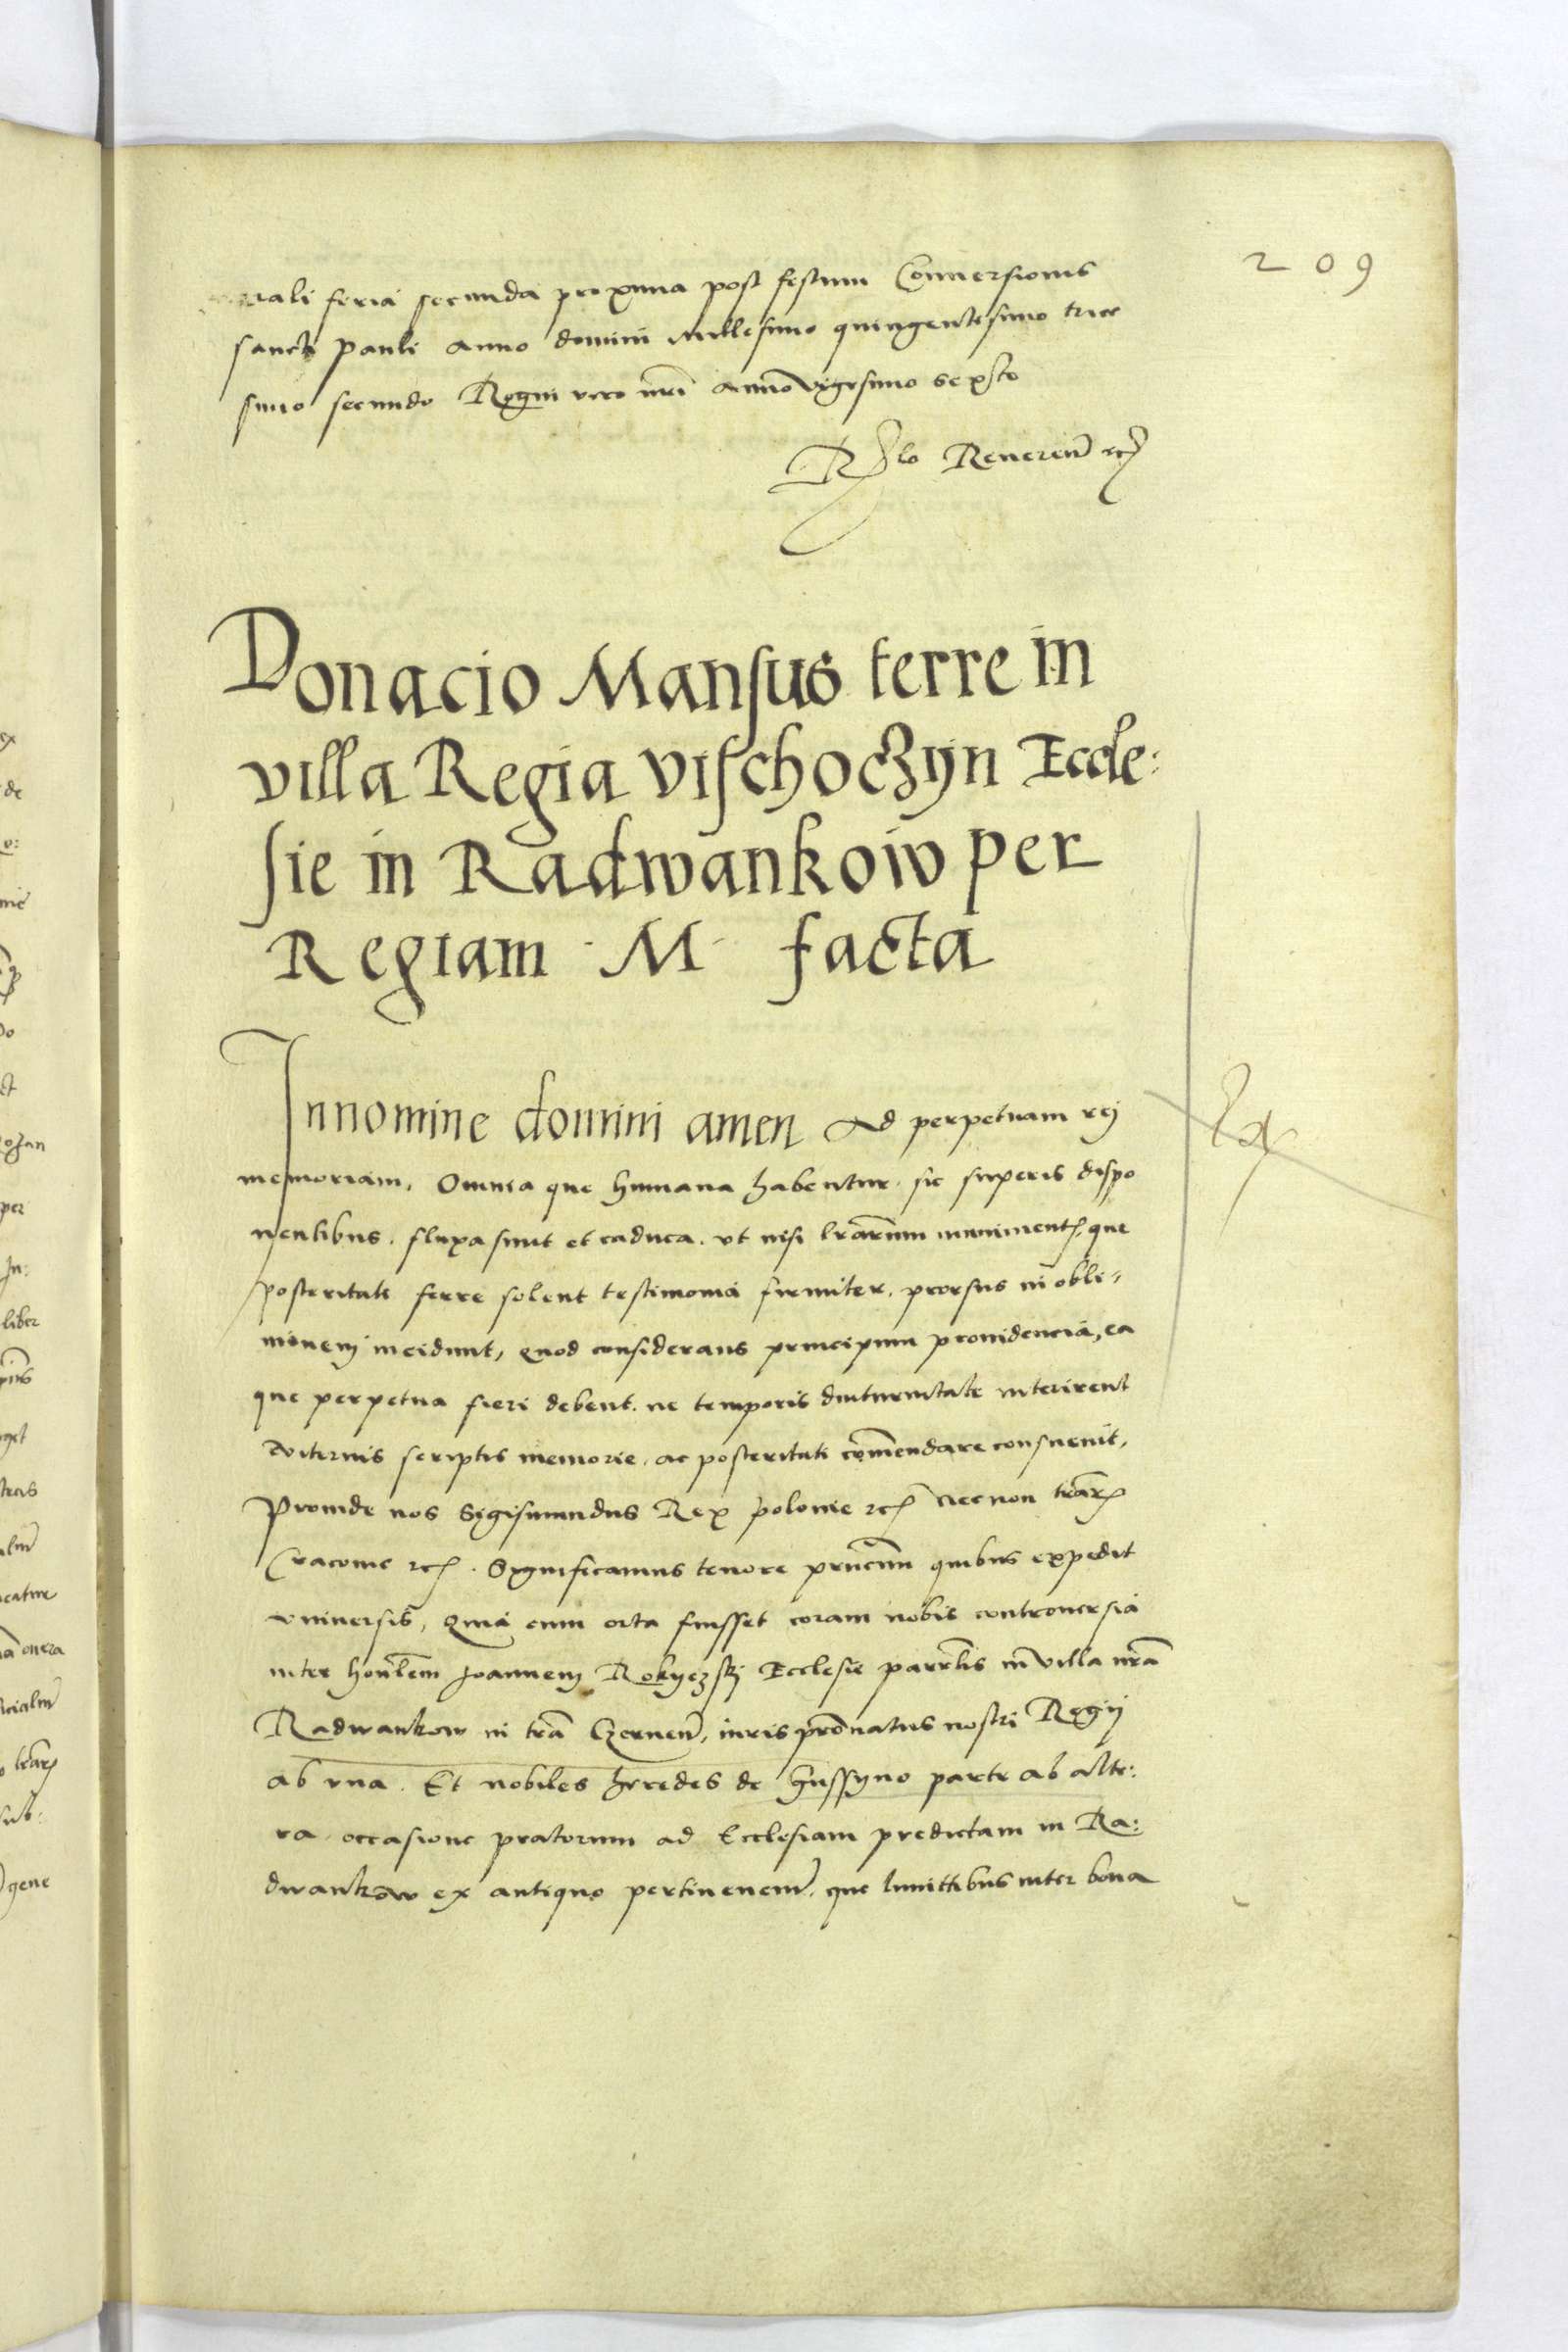 209
nerali feria secunda proxima post festum Conversionis
sancti Pauli Anno domini Millesimo quingentesimo trice
simo secundo Regni vero nr̃i Anno vigesimo sexsto
Rlo Reveren̄ etc
Donacio Mansus terre in
villa Regia vischoczyn Eccle:
sie in Radwankow per
Regiam M facta
In nomine domini amen Ad perpetuam rei
memoriam, Omnia que humana habentur sic superis dispo
nentibus, fluxa sunt et caduca, ut nisi lr̃arum muniment, que
posteritati ferre solent testimonia firmiter, prorsus in obli-
vionem incidunt, quod considerans principum providencia, ea
que perpetua fieri debent, ne temporis diuturnitate interirent
viternis scriptis memorie, ac posteritati com̃endare consuevit,
Proinde nos Sigismundus Rex polonie etc necnon tr̃ar
Cracovie etc. Significamus tenore pr̃ncium quibus expedit
vniversis, Quia cum orta fuisset coram nobis controversia
inter hon̄lem Joannem Rokyczski Ecclesie parr̃lis in villa nr̃a
Radwankow in tr̃a Czernen̄, iuris pr̃onatus nostri Regii
ab vna. Et nobiles heredes de Hussyno parte ab alte:
ra occasione pratorum ad Ecclesiam predictam in Ra:
dwankow ex antiquo pertinenciu̅, que limittibus inter bona